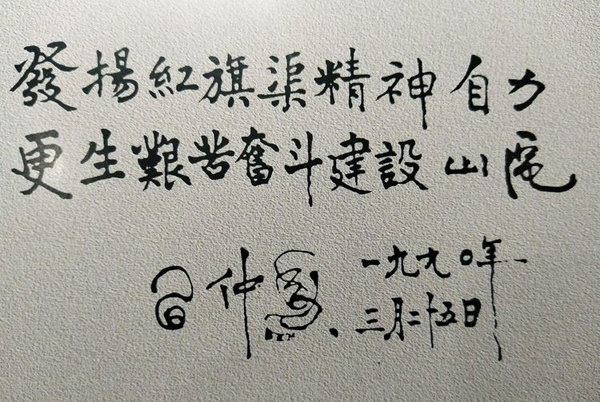 發揚紅旗渠精神自力
更生艱苦奮斗建設山
仲
一九九〇年
三月二十五日